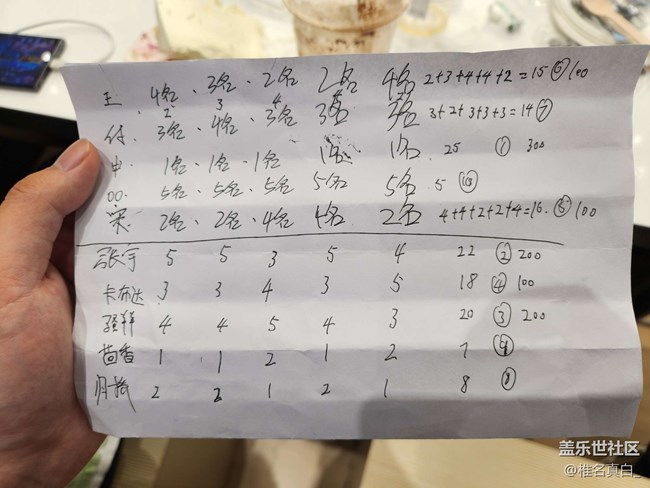 王. 4名、3名、2名 2名 4名 2+3+4+4+2=15 ⑥ 100
2 3 4
付. 3名、4名、3名 3名 3名 3+2+3+3+3=14 ⑦
申. 1名、1名、1名 1名 1名. 25 ① 300
00. 5名、5名、5名 5名 5名 5 ⑩
宋. 2名、2名、4名 4名 2名 4+4+2+2+4=16. ⑤ 100
张宇 5 5 3 5 4 22 ② 200
卡布达 3 3 4 3 5 18 ④ 100
4 4 5 4 3 20 ③ 200
茴香 1 1 2 1 2 7
2 2 1 2 1 8 ⑧
盖乐世社区
@椎名真白_